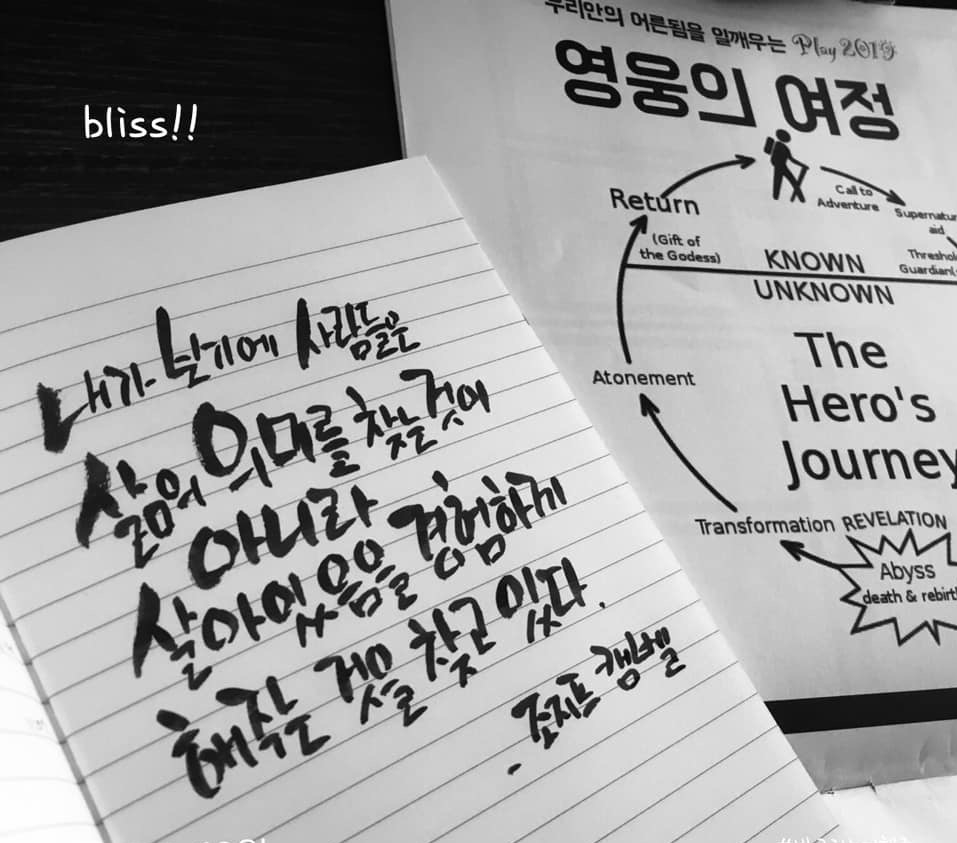 bliss!!
내가 보기에 사람들은
삶의 의미를 찾는 것이
아니라
살아있음을 경험하게
해주는 것을 찾고 있다.
조지프 캠벨
우리안의 어른됨을 일깨우는 Play 2019
영웅의 여정
Return
Call to
Adventure
aid
(Gift of
the Godess)
KNOWN
UNKNOWN
Atonement
The
Hero's
Journey
Transformation
REVELATION
Abyss
death &